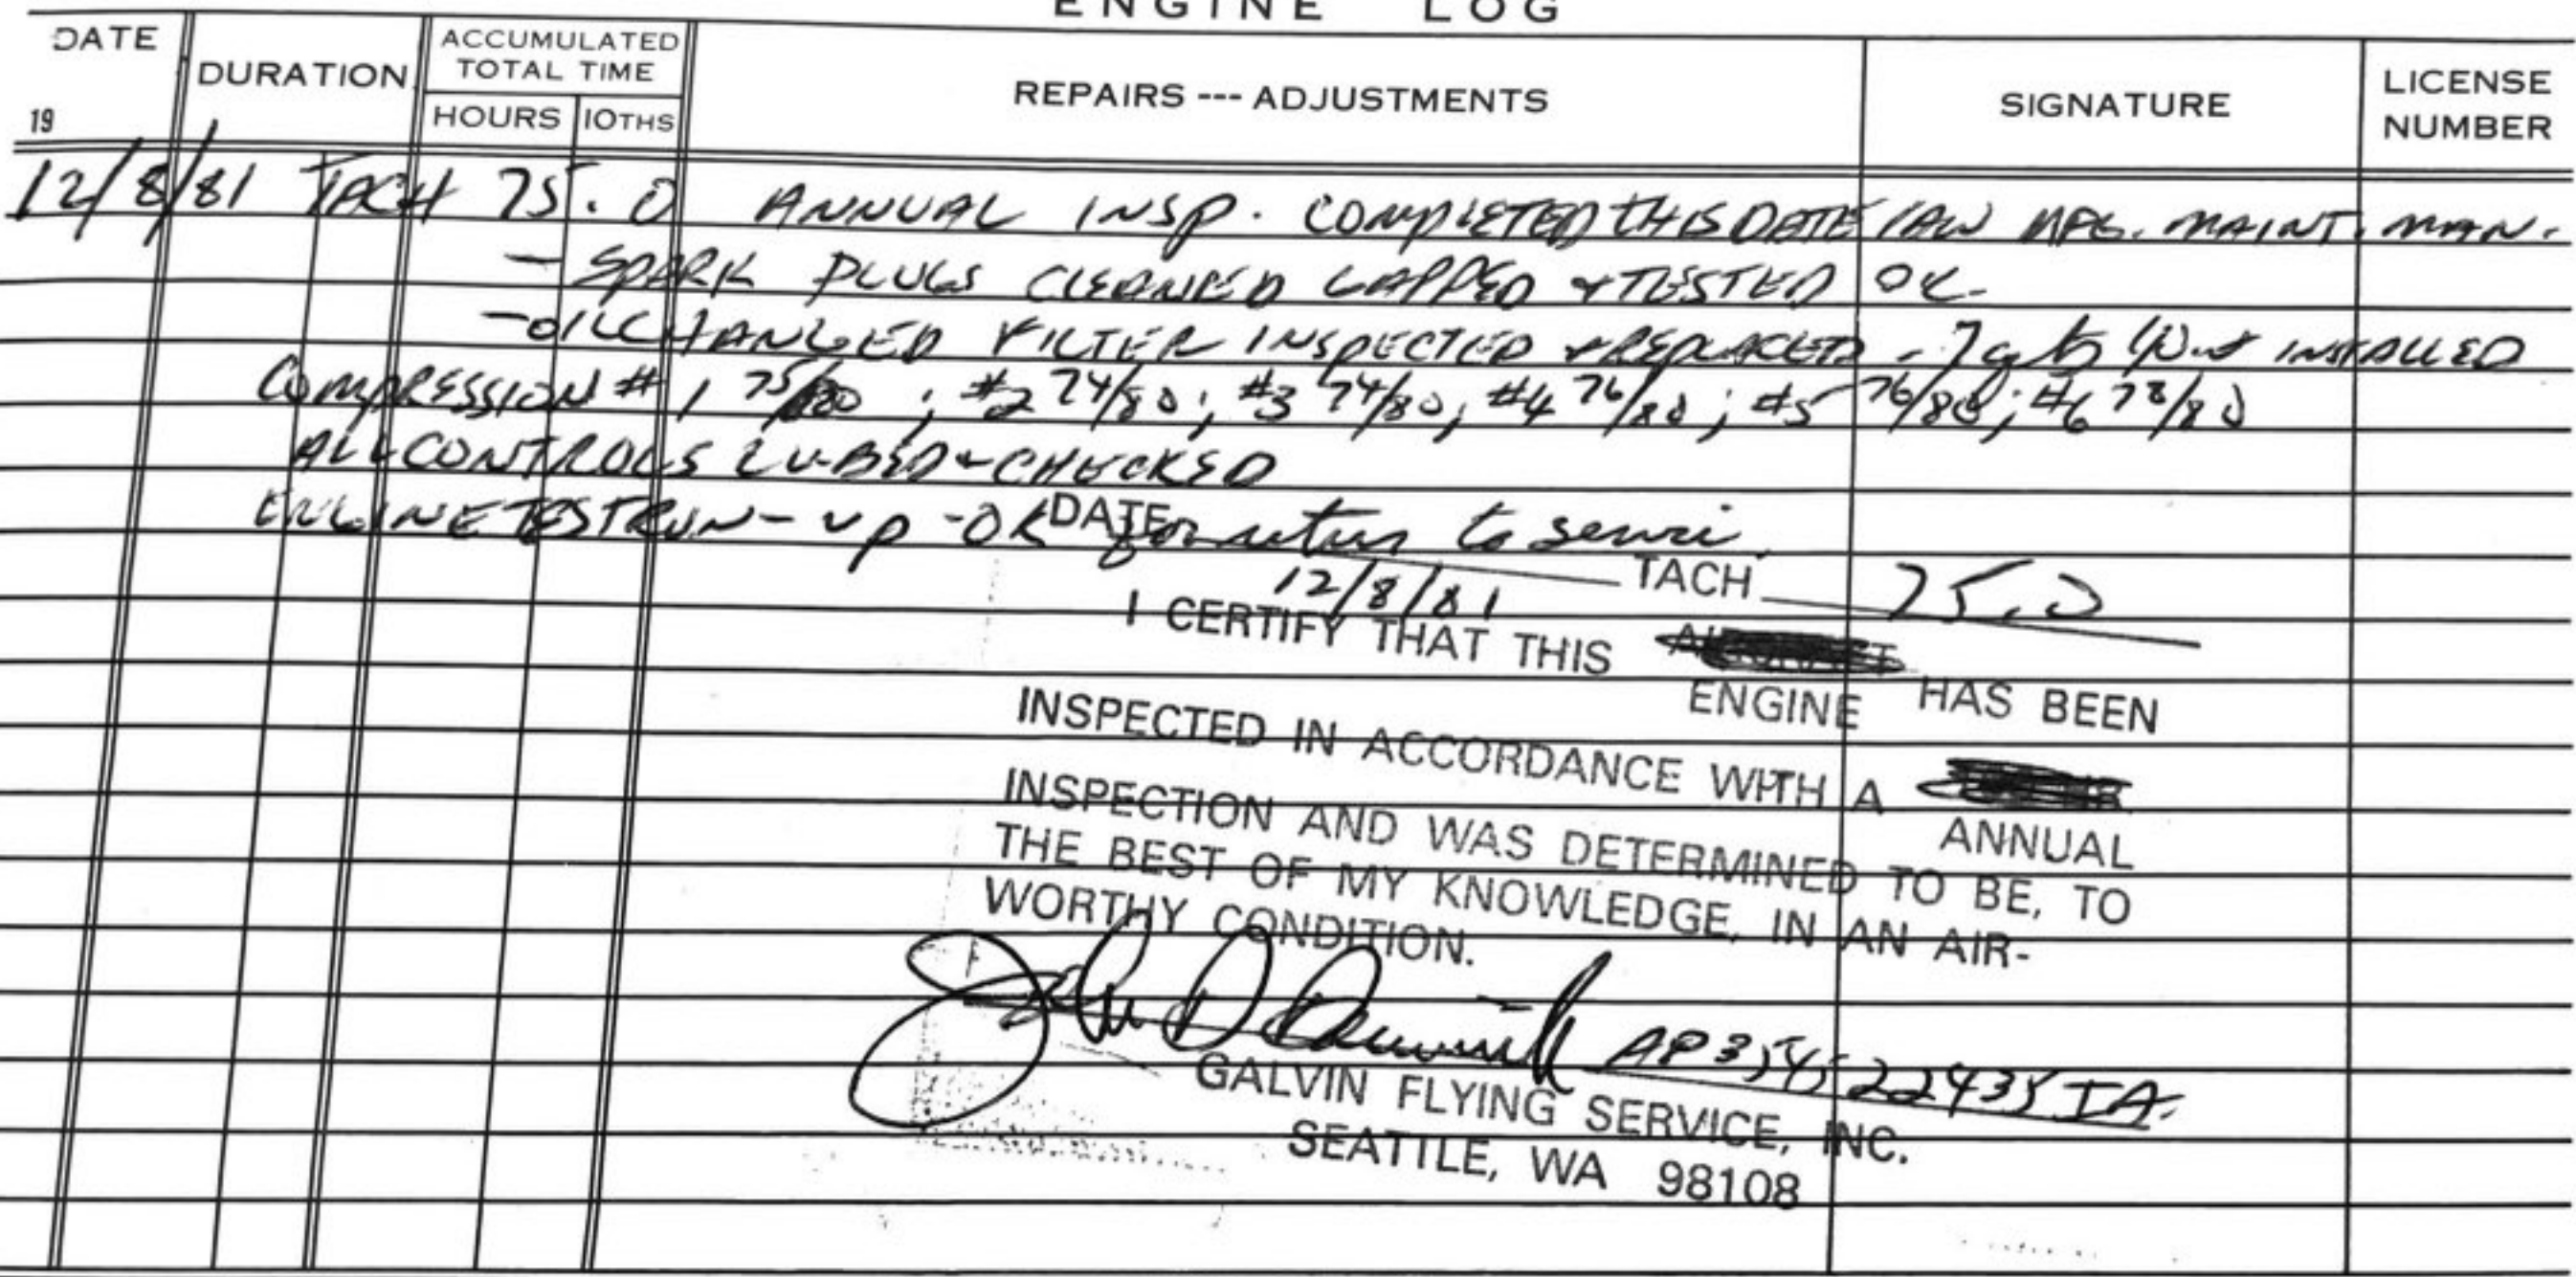 ENGINE LOG
DATE
19
DURATION
ACCUMULATED
TOTAL TIME
HOURS
10THS
REPAIRS --- ADJUSTMENTS
SIGNATURE
LICENSE
NUMBER
12/8/81 TACH 75.0 ANNUAL INSP. COMPLETED THIS DATE IAW MFG. MAINT. MAN.
- SPARK PLUGS CLEANED GAPPED + TESTED OK
- OIL CHANGED FILTER INSPECTED & REPLACED - 7 qts INSTALLED
COMPRESSION #1 75/80; #2 74/80; #3 74/80; #4 76/80; #5 76/80; #6 78/80
ALL CONTROLS LUBED + CHECKED
ENGINE TEST RUN-UP - OK for return to
DATE 12/8/81 TACH 75.0
I CERTIFY THAT THIS
ENGINE HAS BEEN
INSPECTED IN ACCORDANCE WITH A
ANNUAL
INSPECTION AND WAS DETERMINED TO BE, TO
THE BEST OF MY KNOWLEDGE, IN AN AIR-
WORTHY CONDITION.
John D IA
GALVIN FLYING SERVICE, INC.
SEATTLE, WA 98108